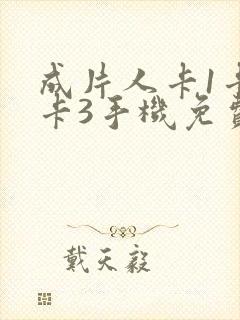 成片人卡1卡
卡3手機免費
戴天毅